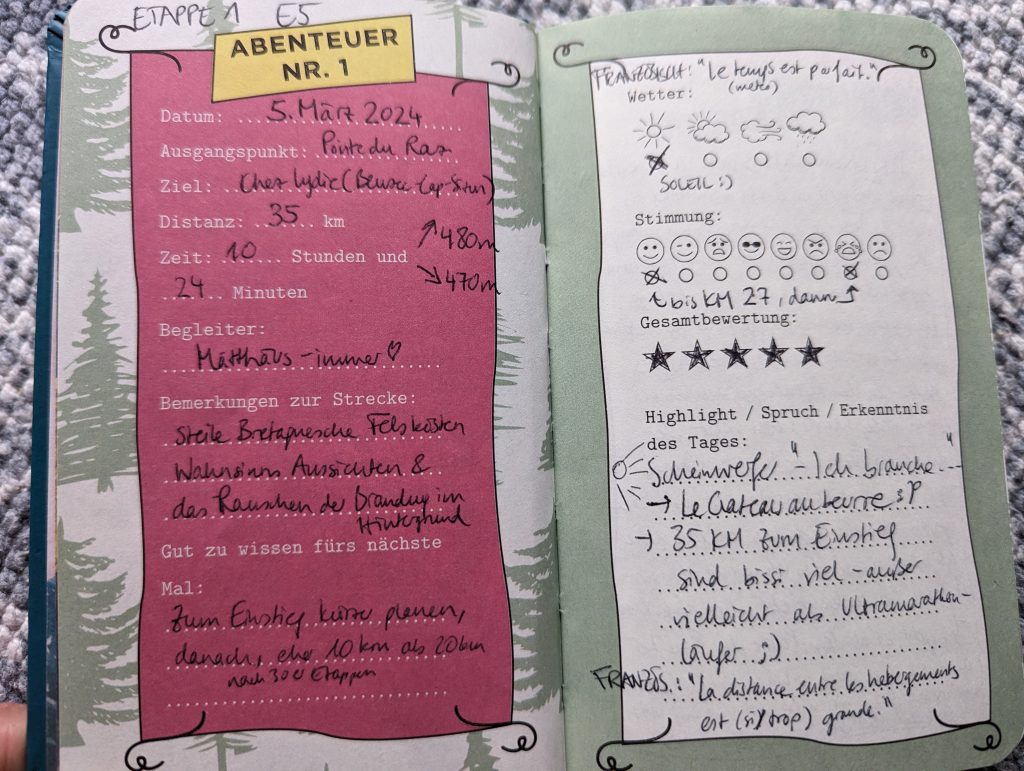 ETAPPE 1 E5
ABENTEUER
NR. 1
Datum: 5. März 2024
Ausgangspunkt: Pointe du Raz
Ziel: Chez Lydie (Beuzec-Cap-Sizun)
Distanz: 35 km
↗ 480m
Zeit: 10 Stunden und
↘ 470m
24 Minuten
Begleiter:
Matthäus - immer ♡
Bemerkungen zur Strecke:
Steile Bretagnesche Felsküsten
Wahnsinns Aussichten &
das Rauschen der Brandung im
Hintergrund
Gut zu wissen fürs nächste
Mal:
Zum Einstieg kürzer planen,
danach, eher 10 km als 20 km
nach 30er Etappen
"Le temps est parfait."
(météo)
Wetter:
SOLEIL :)
Stimmung:
↑ bis KM 27, dann ↑
Gesamtbewertung:
★ ★ ★ ★ ★
Highlight / Spruch / Erkenntnis
des Tages:
"Scheinwerfer" - Ich brauche --"
→ Le Gateau au beurre :P
→ 35 KM zum Einstieg
sind bissi viel - außer
vielleicht als Ultramarathon-
läufer ;)
FRANZÖS.: "La distance entre les hebergements
est (si/trop) grande."